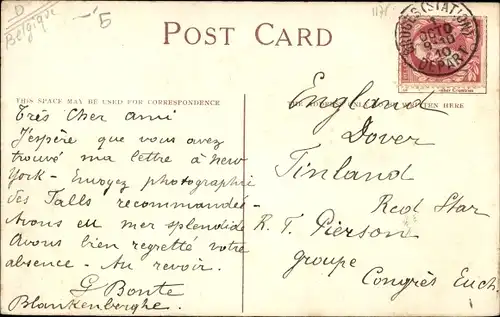 D
Belgique
5
1175
POST CARD
BRUGES (STATION)
OCTO
9-10
10
DEPART
THIS SPACE MAY BE USED FOR CORRESPONDENCE
WRITTEN HERE
Très Cher ami
J'espère que vous avez
trouvé ma lettre à New
York - Envoyez photographie
des Falls recommandée -
Avons eu mer splendide
Avons bien regretté votre
absence - Au revoir.
G Bonte
Blankenberghe.
England
Dover
Finland
Red Star
R. T. Pierson
groupe
Congrès Euch.